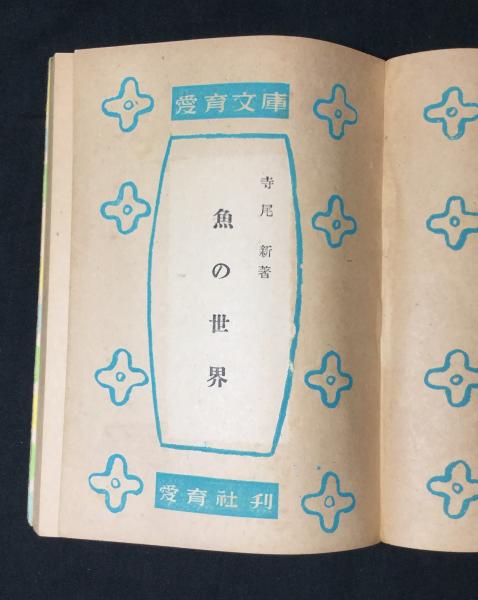 愛育文庫
寺尾 新著
魚の世界
愛育社刊